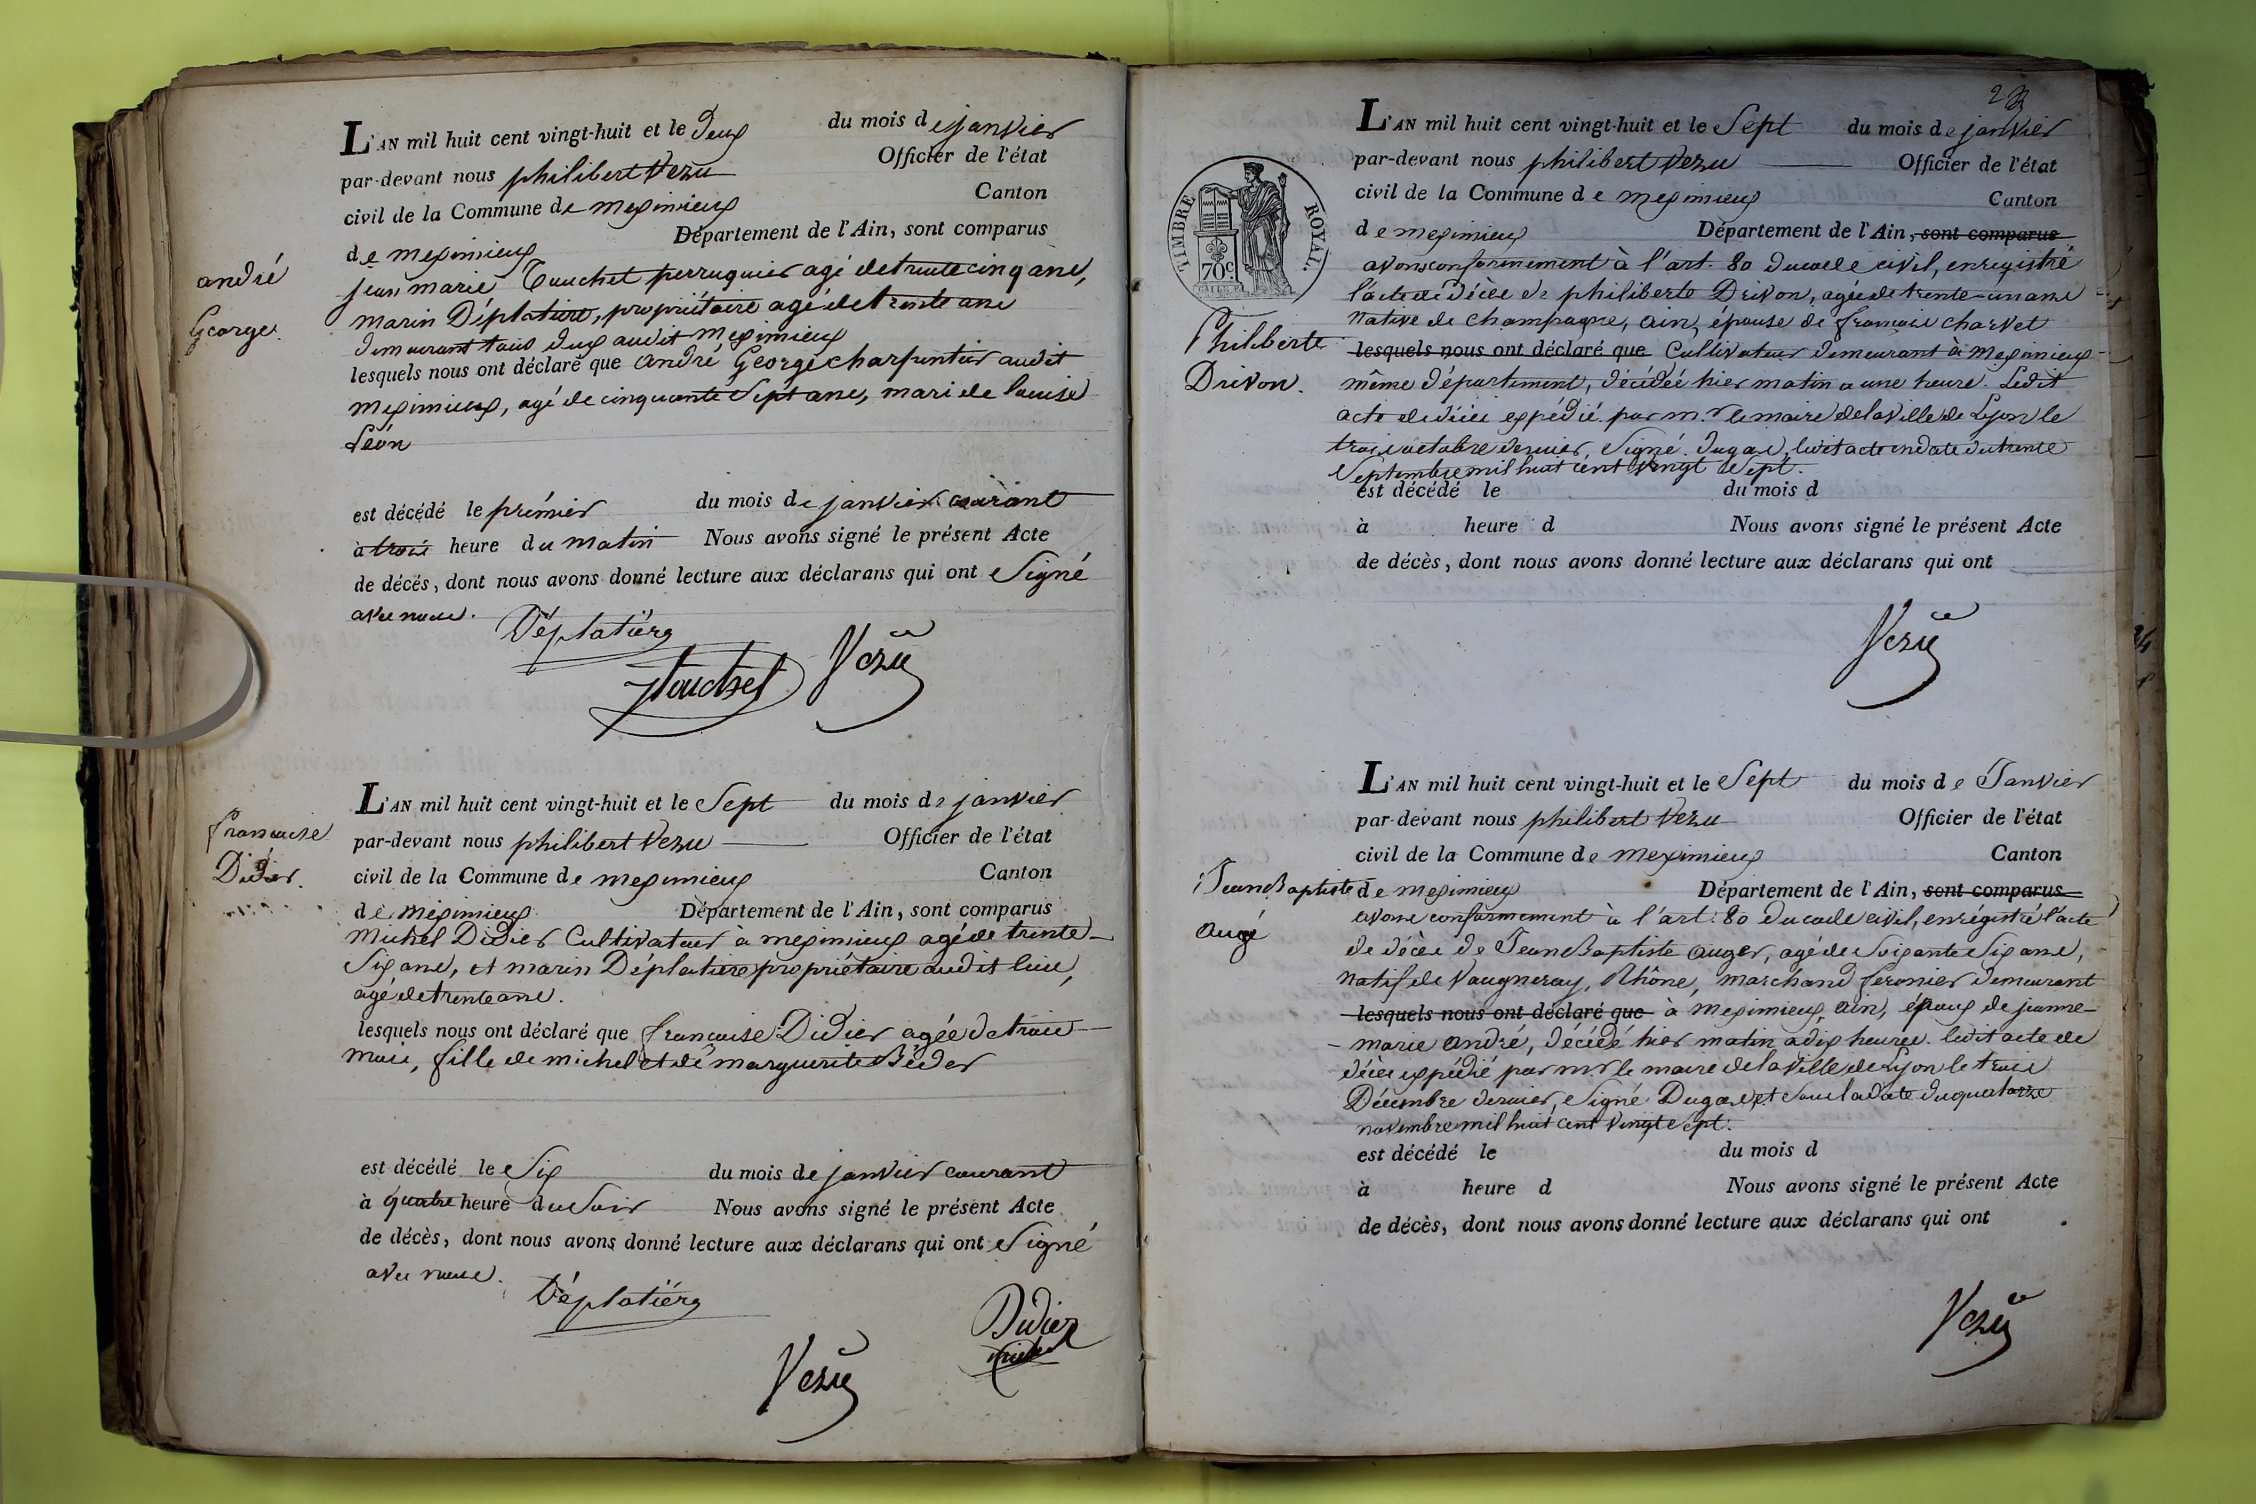 L'AN mil huit cent vingt-huit et le Deux du mois de janvier
par-devant nous philibert Vezu Officier de l'état
civil de la Commune de meximieux Canton
de meximieux Département de l'Ain, sont comparus
jean marie Touchet perruquier agé de trente cinq ans,
marin Déplatière, propriétaire agé de trente ans
demeurant tous deux audit meximieux
lesquels nous ont déclaré que andré George charpentier audit
meximieux, agé de cinquante Sept ans, mari de louise
Léon
est décédé le prémier du mois de janvier courant
à trois heure du matin Nous avons signé le présent Acte
de décés, dont nous avons donné lecture aux déclarans qui ont Signé
avec nous.
Déplatière
Touchet Vezu
andré
George.
L'AN mil huit cent vingt-huit et le Sept du mois de janvier
par-devant nous philibert Vezu Officier de l'état
civil de la Commune de meximieux Canton
de meximieux Département de l'Ain, sont comparus
Michel Didier Cultivateur à meximieux agé de trente
Six ans, et marin Déplatière propriétaire audit lieu,
agé de trente ans.
lesquels nous ont déclaré que françoise Didier agée de trois
mois, fille de michel et de marguerite Béder
est décédé le Six du mois de janvier courant
à quatre heure du Soir Nous avons signé le présent Acte
de décès, dont nous avons donné lecture aux déclarans qui ont Signé
avec nous.
Déplatière
Didier
michel
Vezu
françoise
Didier.
2
L'AN mil huit cent vingt-huit et le Sept du mois de janvier
par-devant nous philibert Vezu Officier de l'état
civil de la Commune de meximieux Canton
de meximieux Département de l'Ain, sont comparus
avons conformément à l'art. 80 du code civil, enregistré
l'acte de décès de philiberte Drivon, agée de trente-un ans
native de Champagne, ain, épouse de françois charvet
lesquels nous ont déclaré que Cultivateur demeurant à Meximieux
même département, décédée hier matin a une heure. Ledit
acte de décès expédié par m.r le maire de la ville de Lyon le
trois octobre dernier, Signé Dugas, ledit acte en date du trente
Septembre mil huit cent vingt Sept.
est décédé le du mois d
à heure d Nous avons signé le présent Acte
de décès, dont nous avons donné lecture aux déclarans qui ont
Vezu
TIMBRE ROYAL.
70c
Philiberte
Drivon.
L'AN mil huit cent vingt-huit et le Sept du mois de Janvier
par-devant nous philibert Vezu Officier de l'état
civil de la Commune de meximieux Canton
de meximieux Département de l'Ain, sont comparus
avons conformément à l'art. 80 du code civil, enrégistré l'acte
de décès de Jean Baptiste auger, agé de Soixante Six ans,
natif de Vaugneray, Rhône, marchand feronier demeurant
lesquels nous ont déclaré que à meximieux, ain, époux de jeanne
marie andré, décédé hier matin a dix heures. ledit acte de
décès expédié par m.r le maire de la ville de Lyon le trois
Décembre dernier, Signé Dugas, et Sous la date du quatorze
novembre mil huit cent vingt Sept.
est décédé le du mois d
à heure d Nous avons signé le présent Acte
de décès, dont nous avons donné lecture aux déclarans qui ont
Vezu
Jean Baptiste
Augé